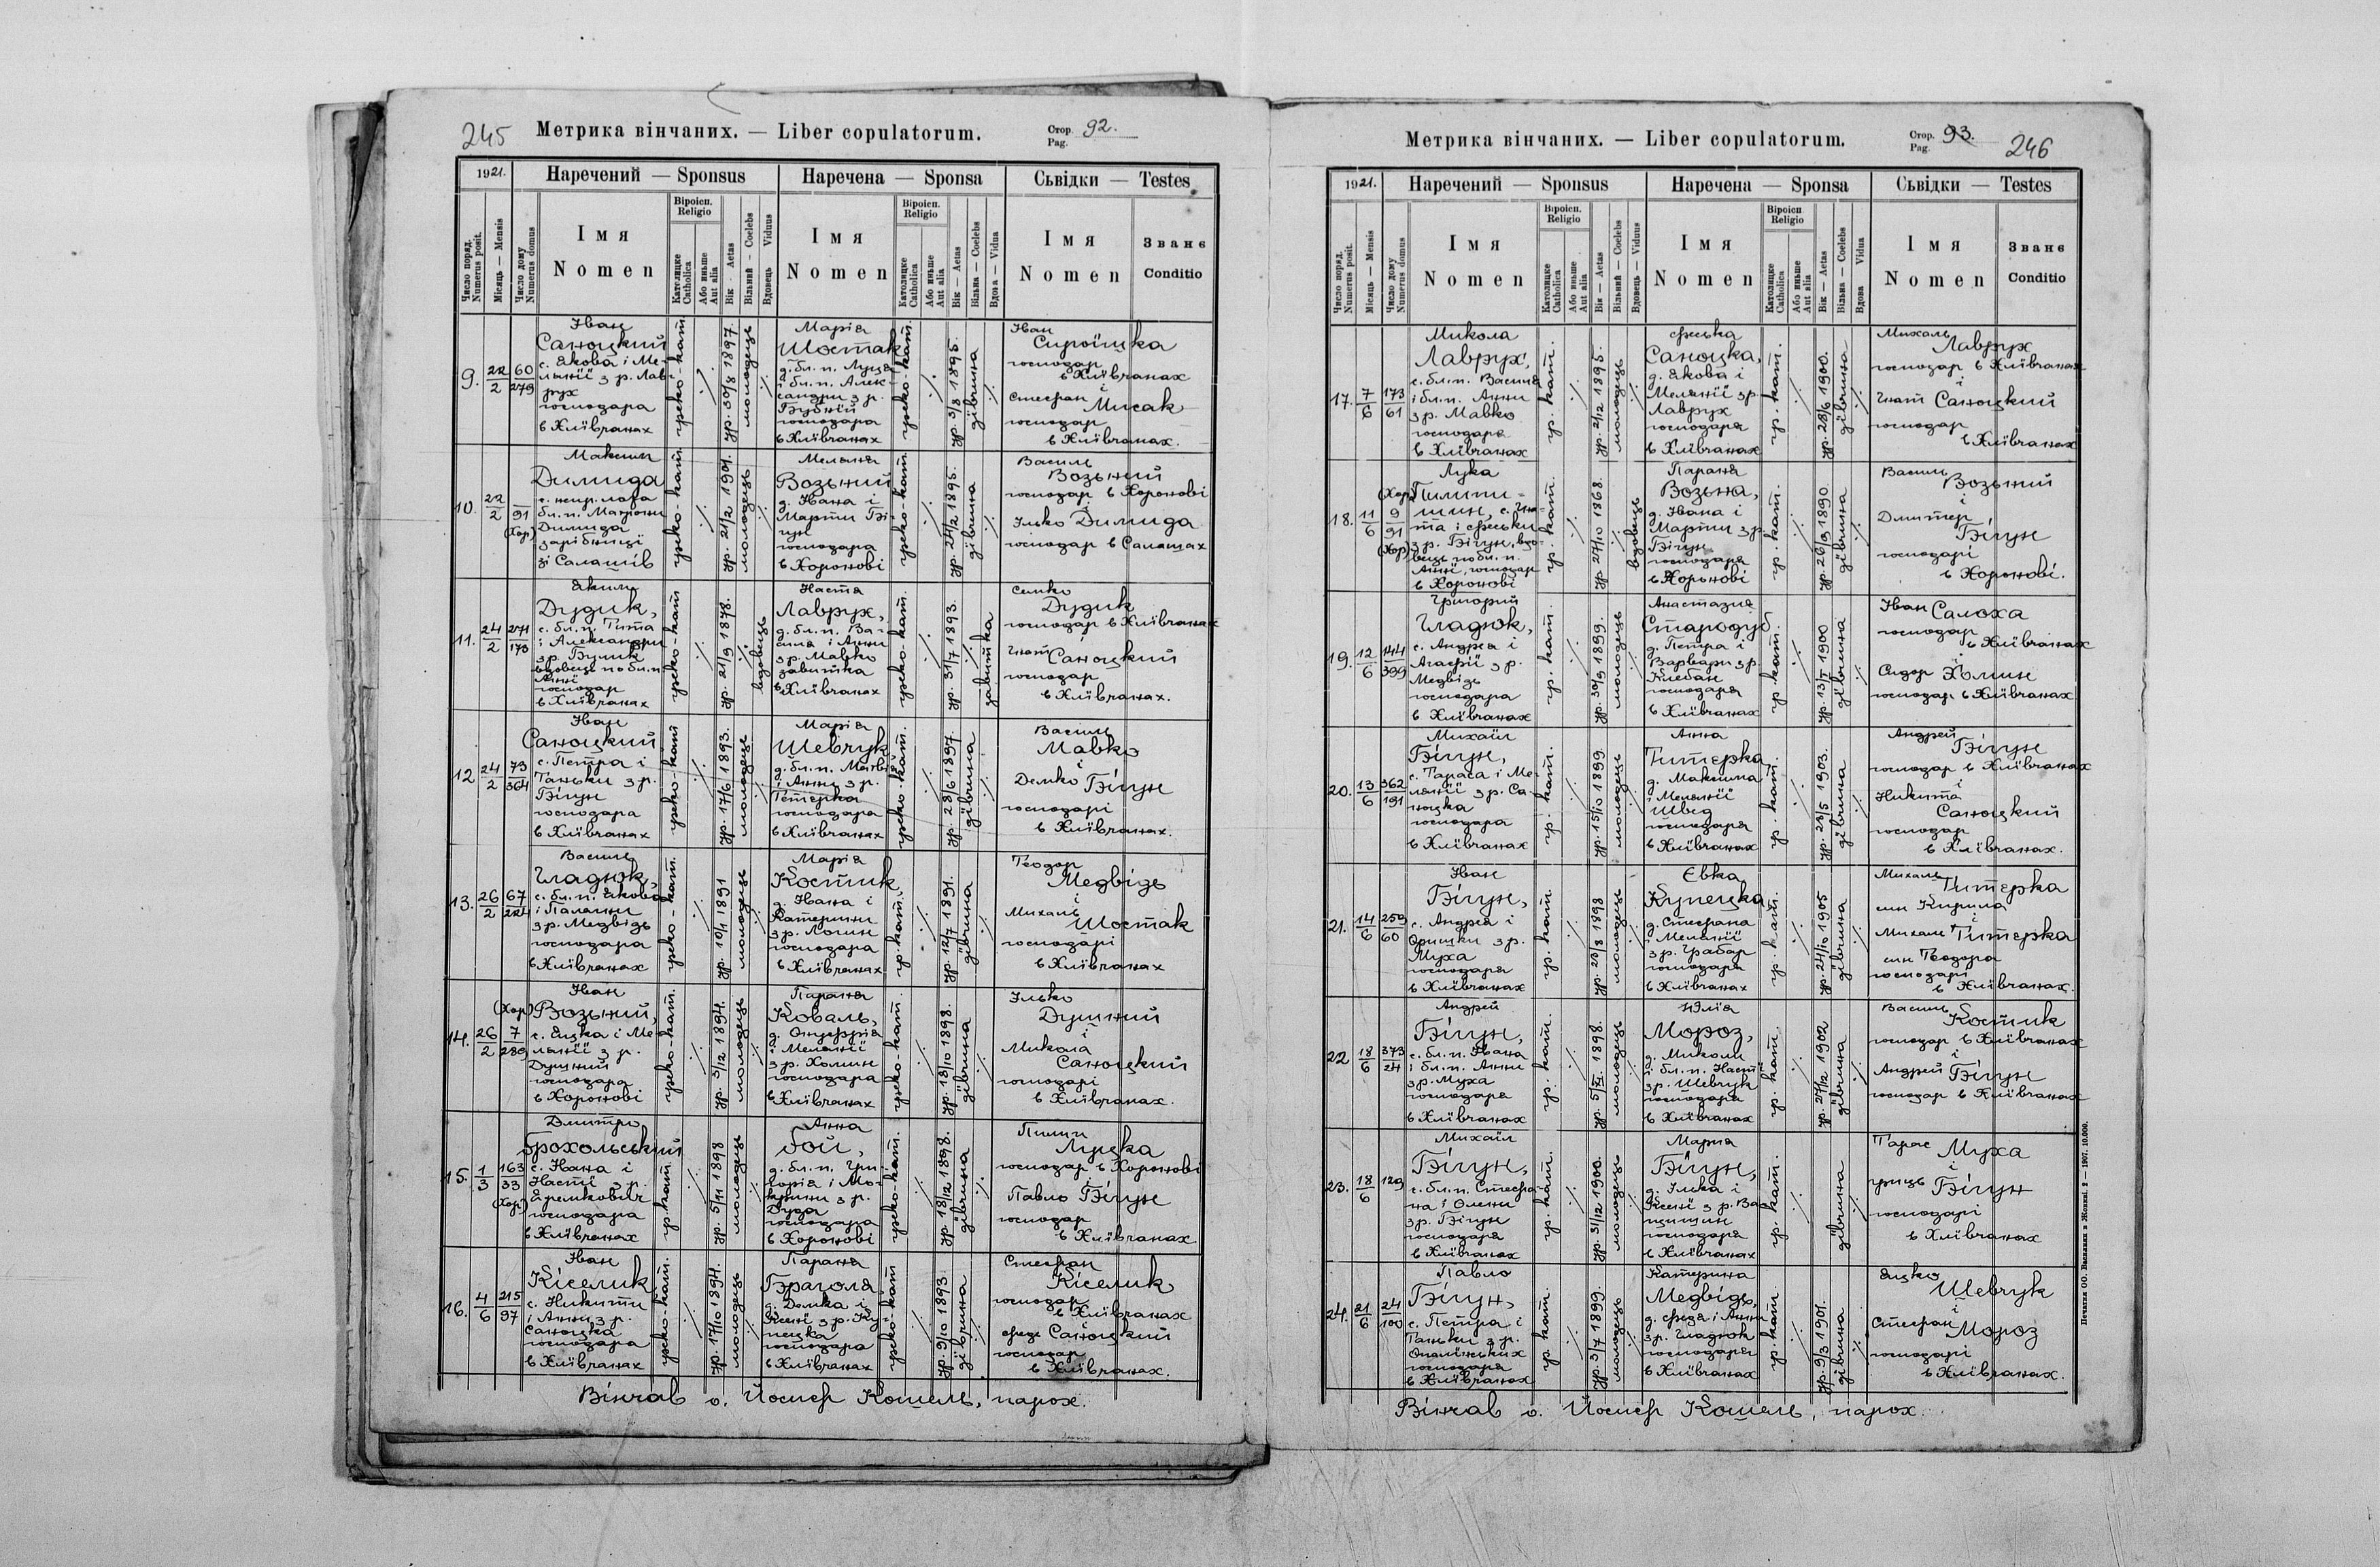 245 Метрика вінчаних. — Liber copulatorum. Стор. Pag. 92.
1921. Наречений — Sponsus Наречена — Sponsa Сьвідки — Testes
Число поряд. Numerus posit.
Місяць — Mensis
Число дому Numerus domus
Імя Nomen
Віроісп. Religio
Католицке Catholica
Або иньше Aut alia
Вік - Aetas
Вільний - Coelebs
Вдовець Viduus
Імя Nomen
Віроісп. Religio
Католицке Catholica
Або иньше Aut alia
Вік — Aetas
Вільна — Coelebs
Вдова — Vidua
Імя Nomen
Званє Conditio
9. 22/2 60/279
Іван
Саноцкий
с. Якова і Ме-
ланії з р. Лав-
рух
господара
в Хлївчанах
греко-кат.
ур. 30/8 1897.
молодець
Марія
Шостак
д. бл. п. Луця
і бл. п. Алек-
сандри з р.
Бубній
господара
в Хлївчанах
греко-кат.
ур. 3/8 1895.
дївчина
Іван
Сироїшка
господар
в Хлївчанах
і
Стефан
Мисак
господар
в Хлївчанах.
10. 22/2 91 (Хор)
Максим
Димида
бл. п. Матрони
Димида
зарібницї
зі Салашів
греко-кат.
ур. 21/2 1901.
молодець
Меланя
Возьний
д. Івана і
Марти Бі-
гун
господара
в Хоронові
греко-кат.
ур. 24/2 1895.
дївчина
Василь
Возьний
господар в Хоронові
і
Ілько Димида
господар в Салашах
11. 24/2 271/173
Яким
Дудик,
с. бл. п. Тита
і Александри
з р. Буцик
вдовець по бл. п.
Анні
господар
в Хлївчанах
греко-кат
ур. 21/9 1878.
вдовець
Наста
Лаврух,
д. бл. п. Ва-
силя і Анни
з р. Мавко
завитка
в Хлївчанах
греко-кат.
ур. 31/7 1893.
завитка
Семко
Дудик
господар в Хлївчанах
і
Гнат
Саноцкий
господар
в Хлївчанах.
12 24/2 73/364
Іван
Саноцкий
с. Петра і
Таньки з р.
Бігун
господара
в Хлївчанах
греко-кат
ур. 17/6 1893.
молодець
Марія
Шевчук
д. бл. п. Матвія
і Анни з р.
Тетерка
господара
в Хлївчанах
греко-кат.
ур. 28/6 1897.
дївчина
Василь
Мавко
і
Демко Бігун
господарі
в Хлївчанах.
13. 26/2 67/224
Василь
Гладюк,
с. бл. п. Якова
і Палагни
з р. Медвідь
господара
в Хлївчанах
греко-кат.
ур. 10/1 1891
молодець
Марія
Костик,
д. Івана і
Катерини
з р. Логин
господара
в Хлївчанах
гр. кат.
ур. 12/7 1891.
дївчина
Теодор
Медвідь
і
Михаль
Шостак
господарі
в Хлївчанах
14. 26/2 (Хор) 7/289
Іван
Возьний,
с. Яцка і Ме-
ланії з р.
Душний
господара
в Хоронові
греко-кат.
ур. 5/12 1894.
молодець
Параня
Коваль,
д. Онуфрія
і Меланії
з р. Холин
господара
в Хлївчанах
греко-кат.
ур. 18/10 1898.
дївчина
Ілько
Душний
і
Микола
Саноцкий
господарі
в Хлївчанах.
15. 1/3 163/33 (Хор)
Дмитро
Грохольський
с. Івана і
Насті з р.
Яремкович
господара
в Хлївчанах
гр. кат.
ур. 5/11 1898
молодець
Анна
Бой,
д. бл. п. Гри-
горія і Мо-
крини з р.
Дуда
господара
в Хоронові
греко-кат.
ур. 18/12 1898.
дївчина
Пилип
Луцка
господар в Хоронові
і
Павло Бігун
господар
в Хлївчанах
16. 4/6 215/97
Іван
Кіселик
с. Никити
і Анни з р.
Саноцка
господара
в Хлївчанах
греко-кат.
ур. 17/10 1894.
молодець
Параня
Брагола,
д. Демка і
Ксенї з р. Ку-
пецка
господара
в Хлївчанах
греко-кат
ур. 9/10 1893
дївчина
Стефан
Кіселик
господар
в Хлївчанах
Саноцкий
господар
в Хлївчанах.
Вінчав о. Йосиф Кошель, парох.
Метрика вінчаних. — Liber copulatorum. Стор. Pag. 93. 246
1921. Наречений — Sponsus Наречена — Sponsa Сьвідки — Testes
Число поряд. Numerus posit.
Місяць — Mensis
Число дому Numerus domus
Імя Nomen
Віроісп. Religio
Католицке Catholica
Або иньше Aut alia
Вік — Aetas
Вільний - Coelebs
Вдовець — Viduus
Імя Nomen
Віроісп. Religio
Католицке Catholica
Або иньше Aut alia
Вік — Aetas
Вільна — Coelebs
Вдова Vidua
Імя Nomen
Званє Conditio
17. 7/6 173/61
Микола
Лаврух,
с. бл. п. Василя
і бл. п. Анни
з р. Мавко
господара
в Хлївчанах
гр. кат.
ур. 2/12 1895.
молодець
Феська
Саноцка,
д. Якова і
Меланії з р.
Лаврух
господара
в Хлївчанах
гр. кат.
ур. 28/6 1900.
дївчина
Михаль
Лаврух
господар в Хлївчанах
і
Гнат Саноцкий
господар
в Хлївчанах
18. 11/6 (Хор) 9/91 (Хор)
Лука
Пилипи-
шин, с. Гна-
та і Феськи
з р. Бігун, вдо-
вець по бл. п.
Анні, господар
в Хоронові
гр. кат.
ур. 27/10 1868.
вдовець
Параня
Возьна,
д. Івана і
Марти з р.
Бігун
господара
в Хоронові
гр. кат.
ур. 26/3 1890.
дївчина
Василь
Возьний
і
Дмитер
Бігун
господарі
в Хоронові.
19. 12/6 144/399
Григорий
Гладюк,
с. Андрея і
Агафії з р.
Медвідь
господара
в Хлївчанах
гр. кат.
ур. 30/9 1899.
молодець
Анастазия
Стародуб
д. Петра і
Варвари з р.
Клебан
господара
в Хлївчанах
гр. кат.
ур. 13/1 1900
дївчина
Іван Салоха
господар
в Хлївчанах
і
Сидор Холин
господар в Хлївчанах
20. 13/6 362/191
Михаіл
Бігун,
с. Тараса і Ме-
ланії з р. Са-
ноцка
господара
в Хлївчанах
гр. кат.
ур. 15/10 1899.
молодець
Анна
Титерка,
д. Максима
і Меланії
Швед
господара
в Хлївчанах
гр. кат.
ур. 23/5 1903.
дївчина
Андрей
Бігун
господар в Хлївчанах
і
Никита
Саноцкий
господар
в Хлївчанах.
21. 14/6 259/60
Іван
Бігун,
с. Андрея і
Оришки з р.
Муха
господара
в Хлївчанах
гр. кат.
ур. 23/8 1898
молодець
Євка
Купецка,
д. Стефана
і Меланії
з р. Грабар
господара
в Хлївчанах
гр. кат.
ур. 24/10 1905
дївчина
Михаль
Титерка
син Кирила
і
Михаль Титерка
син Теодора
господарі
в Хлївчанах.
22 18/6 373/24
Андрей
Бігун,
с. бл. п. Івана
і бл. п. Анни
з р. Муха
господара
в Хлївчанах
гр. кат.
1898.
молодець
Юлія
Мороз,
д. Миколи
і бл. п. Насті
з р. Шевчук
господара
в Хлївчанах
гр. кат.
ур. 27/12 1902
дївчина
Василь
Костик
господар в Хлївчанах
і
Андрей Бігун
господар в Хлївчанах
23. 18/6 129
Михаіл
Бігун,
с. бл. п. Стефа-
на і Олени
з р. Бігун
господара
в Хлївчанах
гр. кат.
ур. 31/12 1900.
молодець
Мария
Бігун,
д. Ілька і
Ксенї з р. Ва-
щишин
господара
в Хлївчанах
гр. кат.
дївчина
Тарас Муха
і
Гриць Бігун
господарі
в Хлївчанах
24. 21/6 24/100
Павло
Бігун,
с. Петра і
Таньки з р.
Опалїнських
господара
в Хлївчанах
гр. кат.
ур. 5/7 1899.
молодець
Катерина
Медвідь,
д. Федя і Анни
з р. Гладюк
господара
в Хлївчанах
гр. кат
ур. 9/3 1901.
дївчина
Яцко
Шевчук
і
Стефан
Мороз
господарі
в Хлївчанах.
Вінчав о. Йосиф Кошель, парох.
Печатня ОО. Василиян в Жовкві. 2 — 1907. 10.000.